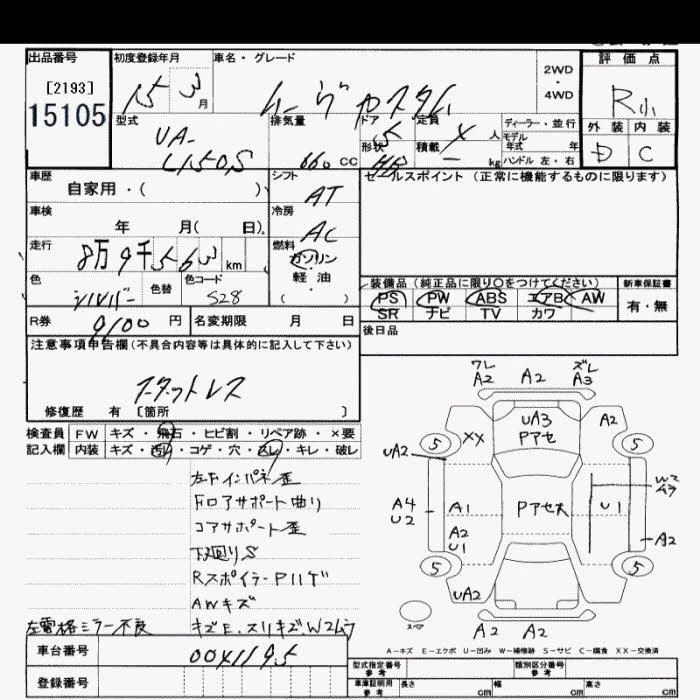 出品番号 初度登録年月 車名・グレード 評価点
[2193] 15 3月 ムーヴカスタム 2WD・4WD R小
15105
型式 排気量 ドア 定員 ディーラー・並行 外装 内装
UA- 5 人 モデル年式 年 D C
L150S 660cc 形状 HB 積載 kg ハンドル 左・右
車歴 シフト セールスポイント (正常に機能するものに限ります)
自家用・( ) AT
車検 冷房
年 月( 日) AC
走行 燃料
8万9千563km ガソリン
色 色替 色コード 軽油 装備品 (純正品に限り○をつけてください) 新車保証書
シルバー S28 ( ・ ) PS PW ABS エアB AW 有・無
SR ナビ TV カワ
R券 9100円 名変期限 月 日 後日品
注意事項申告欄(不具合内容等は具体的に記入して下さい)
スタットレス
修復歴 有 〔箇所 〕
検査員 FW キズ・飛石・ヒビ割・リペア跡・×要
記入欄 内装 キズ・汚レ・コゲ・穴・スレ・キレ・破レ
左Fインパネ歪
Fロアサポート曲り
コアサポート歪
下廻りS
RスポイラーPハゲ
AWキズ
左電格ミラー不良 キズE、スリキズ、W2ムラ
車台番号 0041195
登録番号
ワレ ズレ
A2 A2 A3
UA3 A2
5 XX Pアセ 5
UA2
W2
ムラ
A4 A1 Pアセ大 U1
U2
A2 A2
U1
5 5
UA2
スペア A2 A2
A-キズ E-エクボ U-凹み W-補修跡 S-サビ C-腐食 XX-交換済
型式指定番号 参考 類別区分番号 参考
車庫証明用 参考 長さ cm 幅 cm 高さ cm